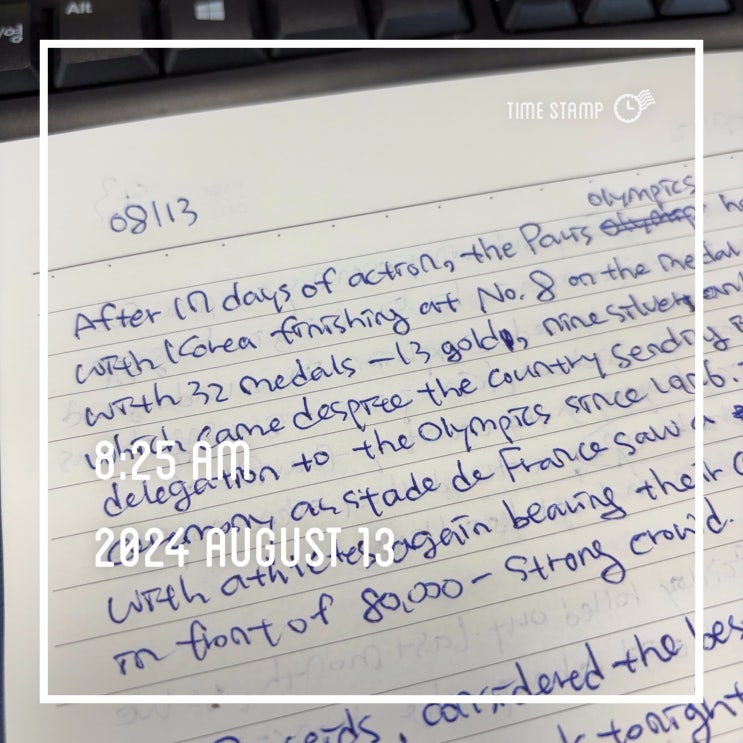 Alt
영
TIME STAMP
08/13
Olympics
After 17 days of action, the Paris
with Korea finishing at No. 8 on the medal
with 32 medals - 13 gold, nine silver and
which came despite the country sending
delegation to the Olympics since 1976.
ceremony at Stade de France saw a
with athletes again bearing their
in front of 80,000 - strong crowd.
considered the bes
tonight
8:25 AM
2024 AUGUST 13